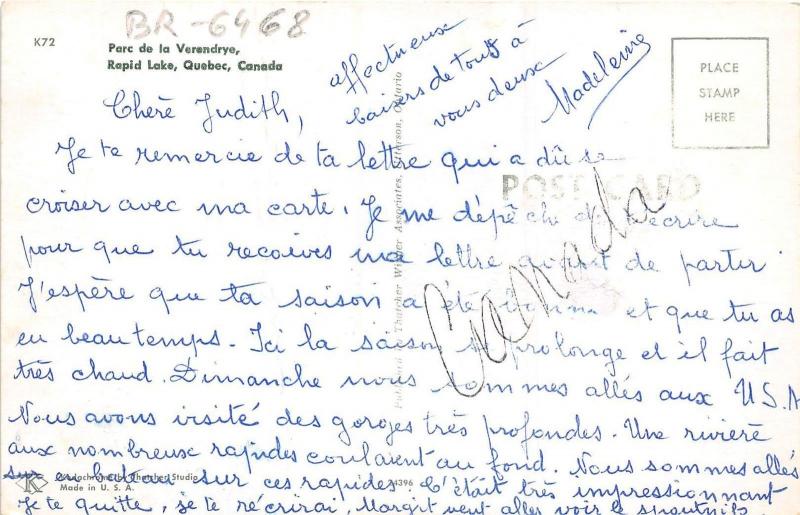 BR-6468
K72
Parc de la Verendrye,
Rapid Lake, Quebec, Canada
PLACE
STAMP
HERE
POST CARD
Canada
Chère Judith,
Je te remercie de ta lettre qui a dû se
croiser avec ma carte. Je me dépêche de écrire
pour que tu recoives ma lettre avant de partir
J'espère que ta saison a été bonne et que tu as
eu beau temps. Ici la saison se prolonge et il fait
très chaud. Dimanche nous sommes allés aux U.S.A
Nous avons visité des gorges très profondes. Une rivière
aux nombreux rapides coulaient au fond. Nous sommes allés
sur en bateau sur ces rapides. C'était très impressionnant
Je te quitte, je te récrirai, Margit veut aller voir le spoutnik.
affectueux
baisers de tous à
vous deux
Madeleine
Published by Thatcher Winter Associates, Patterson, Ontario
by Thatcher Studio
Made in U. S. A.
K
4396